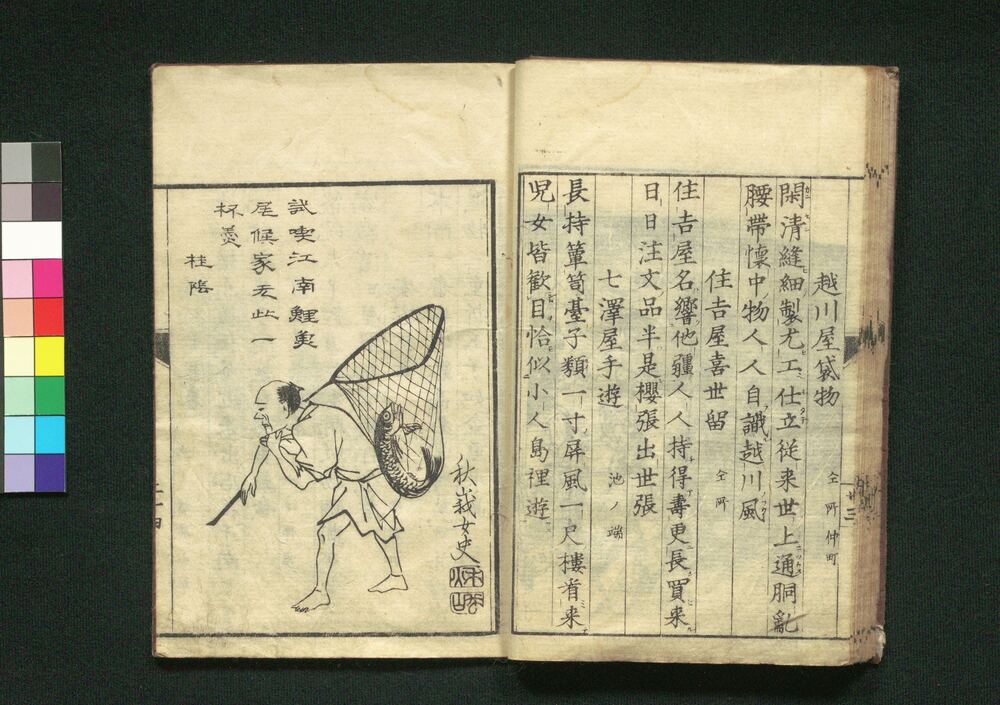 越川屋袋物
仝所仲町
閑清縫細製尤工仕立従来世上通胴亂
腰帯懐中物人人自識越川風
住吉屋喜世留
仝所
住吉屋名響他疆人人持得壽更長買来
日日注文品半是櫻張出世張
七澤屋手遊
池ノ端
長持簞笥臺子類一寸屏風一尺樓看来
児女皆歡目恰似小人島裡遊
試喫江南鯉魚
居候家无此一
杯羹
桂陰
秋峩女史